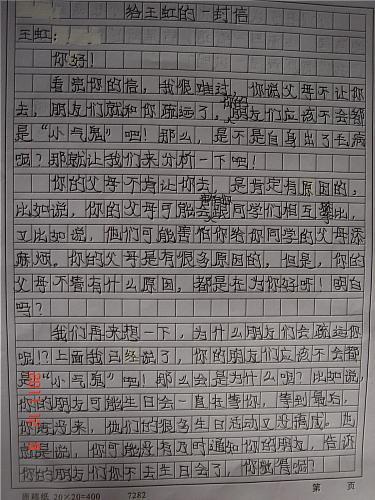 给王虹的一封信
王虹:
你好!
看完你的信,我很难过,你说父母不让你
去,朋友们就和你疏远了。你的朋友们应该不会都
是“小气鬼”吧!那么,是不是自身出了毛病
呢?那就让我们来分析一下吧!
你的父母不肯让你去,是肯定有原因的,
比如说,你的父母可能会跟同学们相互攀比,
又比如说,他们可能害怕你给你同学的父母添
麻烦。你的父母是有很多原因的,但是,你的
父母不管有什么原因,都是在为你好呀!明白
吗?
我们再来想一下,为什么朋友们会疏远你
呢!?上面我已经说了,你的朋友们应该不会都
是“小气鬼”吧!那么会是为什么呢?比如说,
你的朋友可能生日会一直在等你,等到最后,
你再没来,他们的很多生日活动又没搞成。也
就是说,你可能没有及时通知你的朋友,告诉
你的朋友们你不去生日会了,你说有呢?
20×20=400 7282 第 页